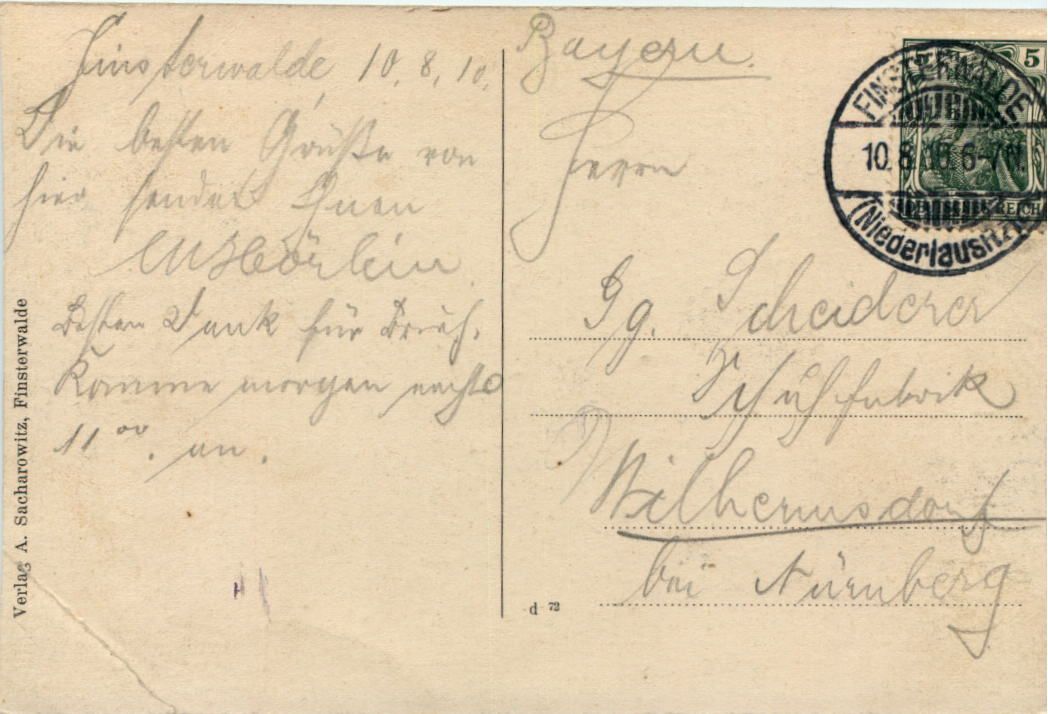 Finsterwalde 10.8.10.
Die besten Grüße von
hier sendet Ihnen
Besten Dank für Brief.
Komme morgen nachts
11 00. an.
Verlag A. Sacharowitz, Finsterwalde
Bayern.
Herrn
Gg. Scheiderer
Schuhfabrik
Wilhermsdorf
bei Nürnberg
d 72
5
FINSTERWALDE
10.8.10 6-7N.
(Niederlausitz)